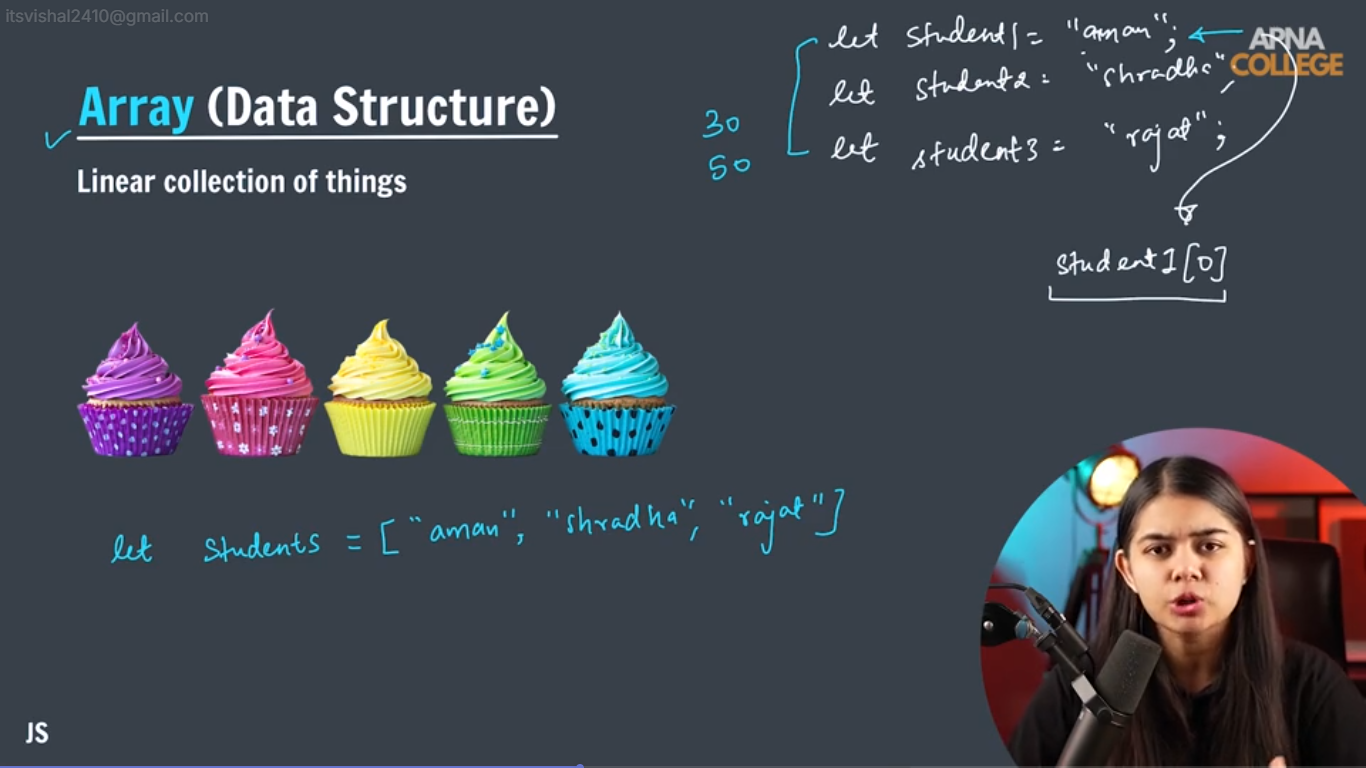 itsvishal2410@gmail.com
Array (Data Structure)
Linear collection of things
30
50
let student1 = "aman";
let student2 = "shradha";
let student3 = "rajat";
APNA
COLLEGE
student1[0]
let students = ["aman", "shradha", "rajat"]
JS